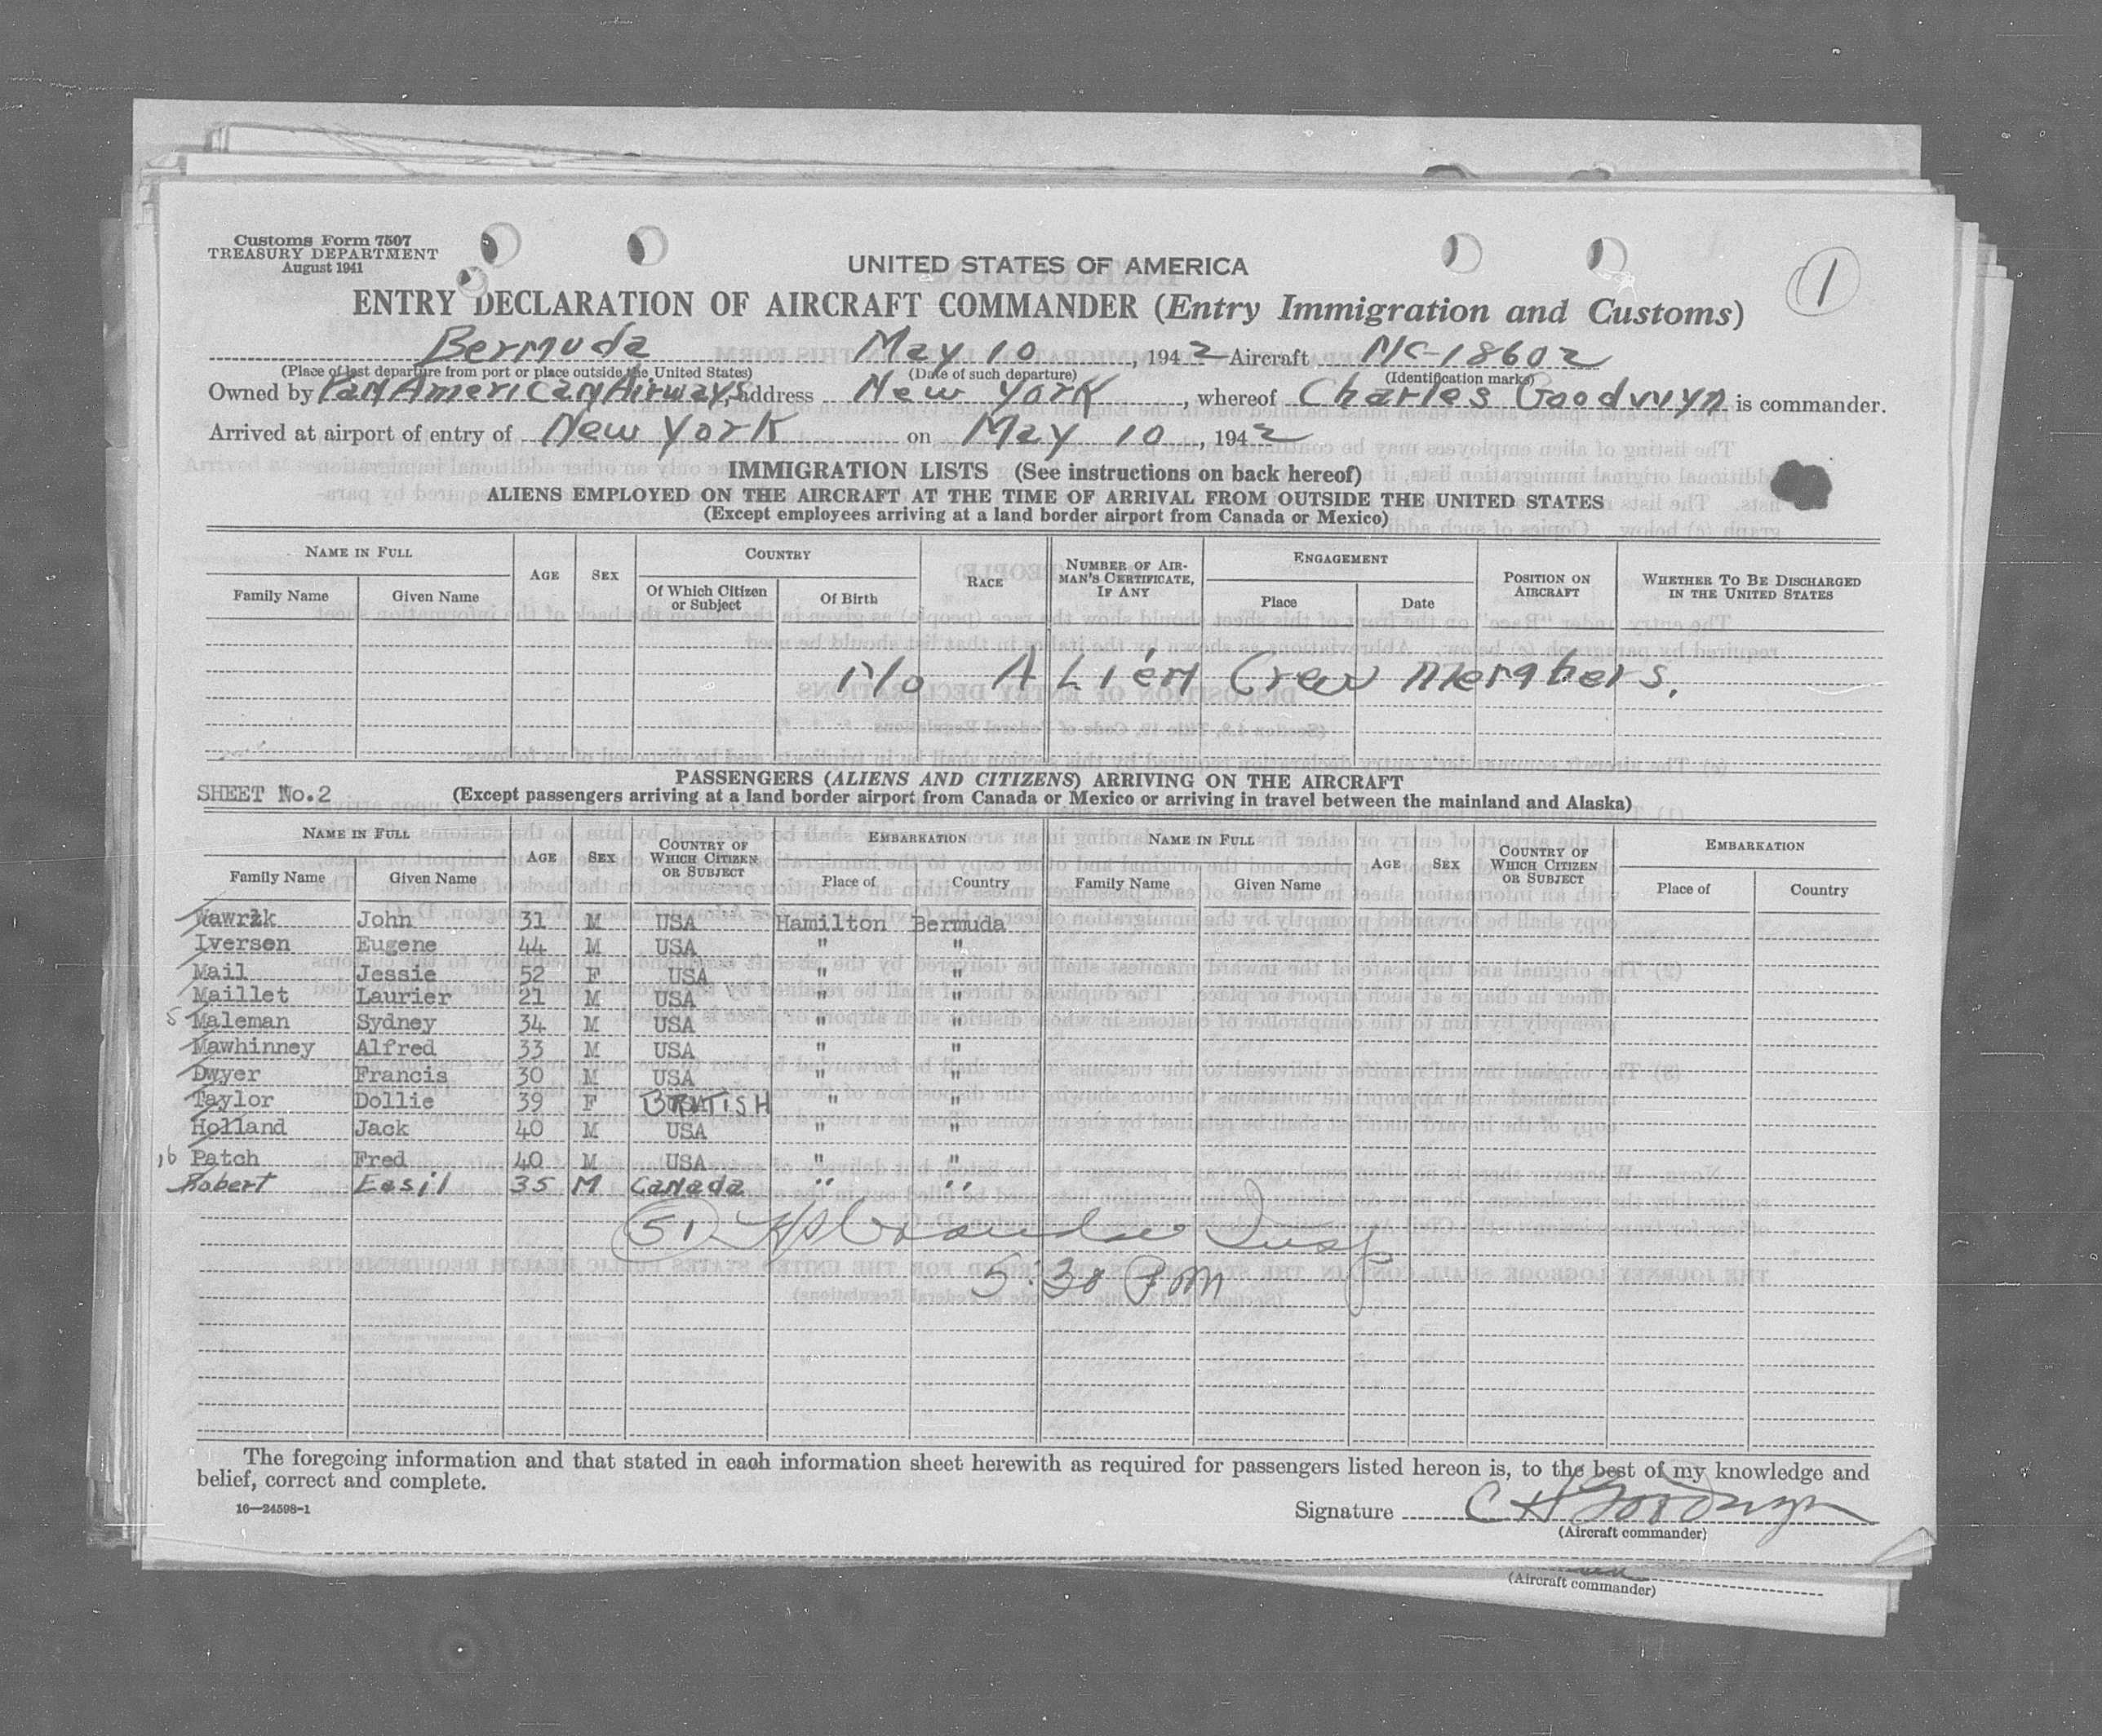 Customs Form 7507
TREASURY DEPARTMENT
August 1941
1
UNITED STATES OF AMERICA
ENTRY DECLARATION OF AIRCRAFT COMMANDER (Entry Immigration and Customs)
Bermuda May 10, 1942 Aircraft NC-18602
(Place of last departure from port or place outside the United States) (Date of such departure) (Identification marks)
Owned by Pan American Airways, address New York, whereof Charles Goodwyn is commander.
Arrived at airport of entry of New York on May 10, 1942
IMMIGRATION LISTS (See instructions on back hereof)
ALIENS EMPLOYED ON THE AIRCRAFT AT THE TIME OF ARRIVAL FROM OUTSIDE THE UNITED STATES
(Except employees arriving at a land border airport from Canada or Mexico)
NAME IN FULL AGE SEX COUNTRY RACE NUMBER OF AIRMAN'S CERTIFICATE, IF ANY ENGAGEMENT POSITION ON AIRCRAFT WHETHER TO BE DISCHARGED IN THE UNITED STATES
Family Name Given Name Of Which Citizen or Subject Of Birth Place Date
No Alien Crew Members.
PASSENGERS (ALIENS AND CITIZENS) ARRIVING ON THE AIRCRAFT
SHEET No.2 (Except passengers arriving at a land border airport from Canada or Mexico or arriving in travel between the mainland and Alaska)
NAME IN FULL AGE SEX COUNTRY OF WHICH CITIZEN OR SUBJECT EMBARKATION NAME IN FULL AGE SEX COUNTRY OF WHICH CITIZEN OR SUBJECT EMBARKATION
Family Name Given Name Place of Country Family Name Given Name Place of Country
John 31 M USA Hamilton Bermuda
Iversen Eugene 44 M USA " "
Mail Jessie 52 F USA " "
Maillet Laurier 21 M USA " "
5 Maleman Sydney 34 M USA " "
Mawhinney Alfred 33 M USA " "
Dwyer Francis 30 M USA " "
Taylor Dollie 39 F BRITISH " "
Holland Jack 40 M USA " "
10 Patch Fred 40 M USA " "
Robert Easil 35 M Canada " "
51 Insp
5:30 PM
The foregoing information and that stated in each information sheet herewith as required for passengers listed hereon is, to the best of my knowledge and
belief, correct and complete.
16—24598-1
Signature C H Goodwyn
(Aircraft commander)
(Aircraft commander)